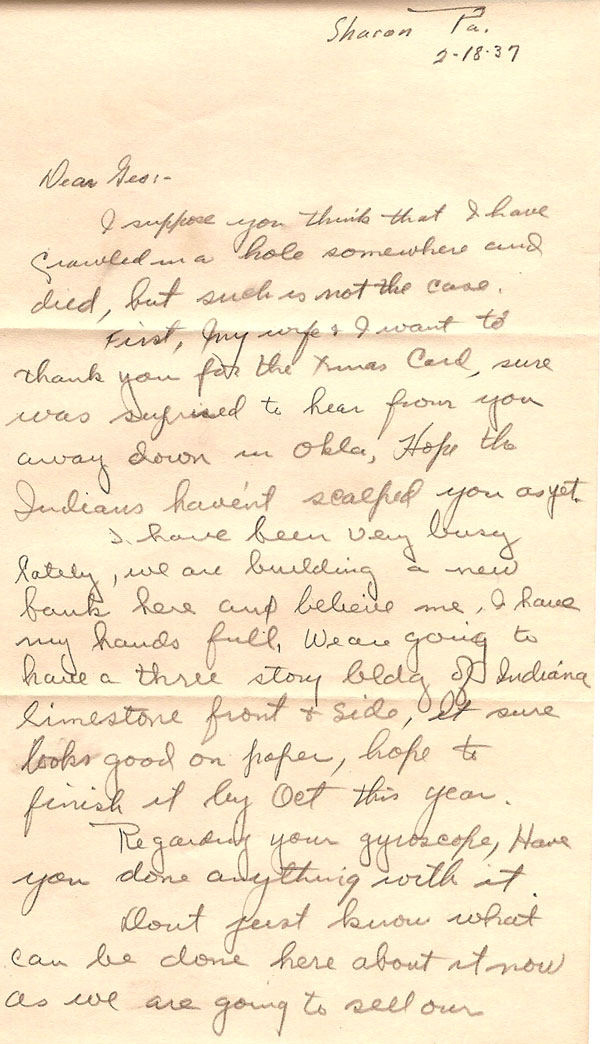 Sharon Pa.
2-18-37
Dear Geo:-
I suppose you think that I have
crawled in a hole somewhere and
died, but such is not the case.
First, My wife & I want to
thank you for the Xmas Card, sure
was suprised to hear from you
away down in Okla, Hope the
Indians haven't scalped you as yet.
I have been very busy
lately, we are building a new
bank here and believe me, I have
my hands full, We are going to
have a three story bldg of Indiana
limestone front & side, it sure
looks good on paper, hope to
finish it by Oct this year.
Regarding your gyroscope, Have
you done anything with it.
Dont just know what
can be done here about it now
as we are going to sell our